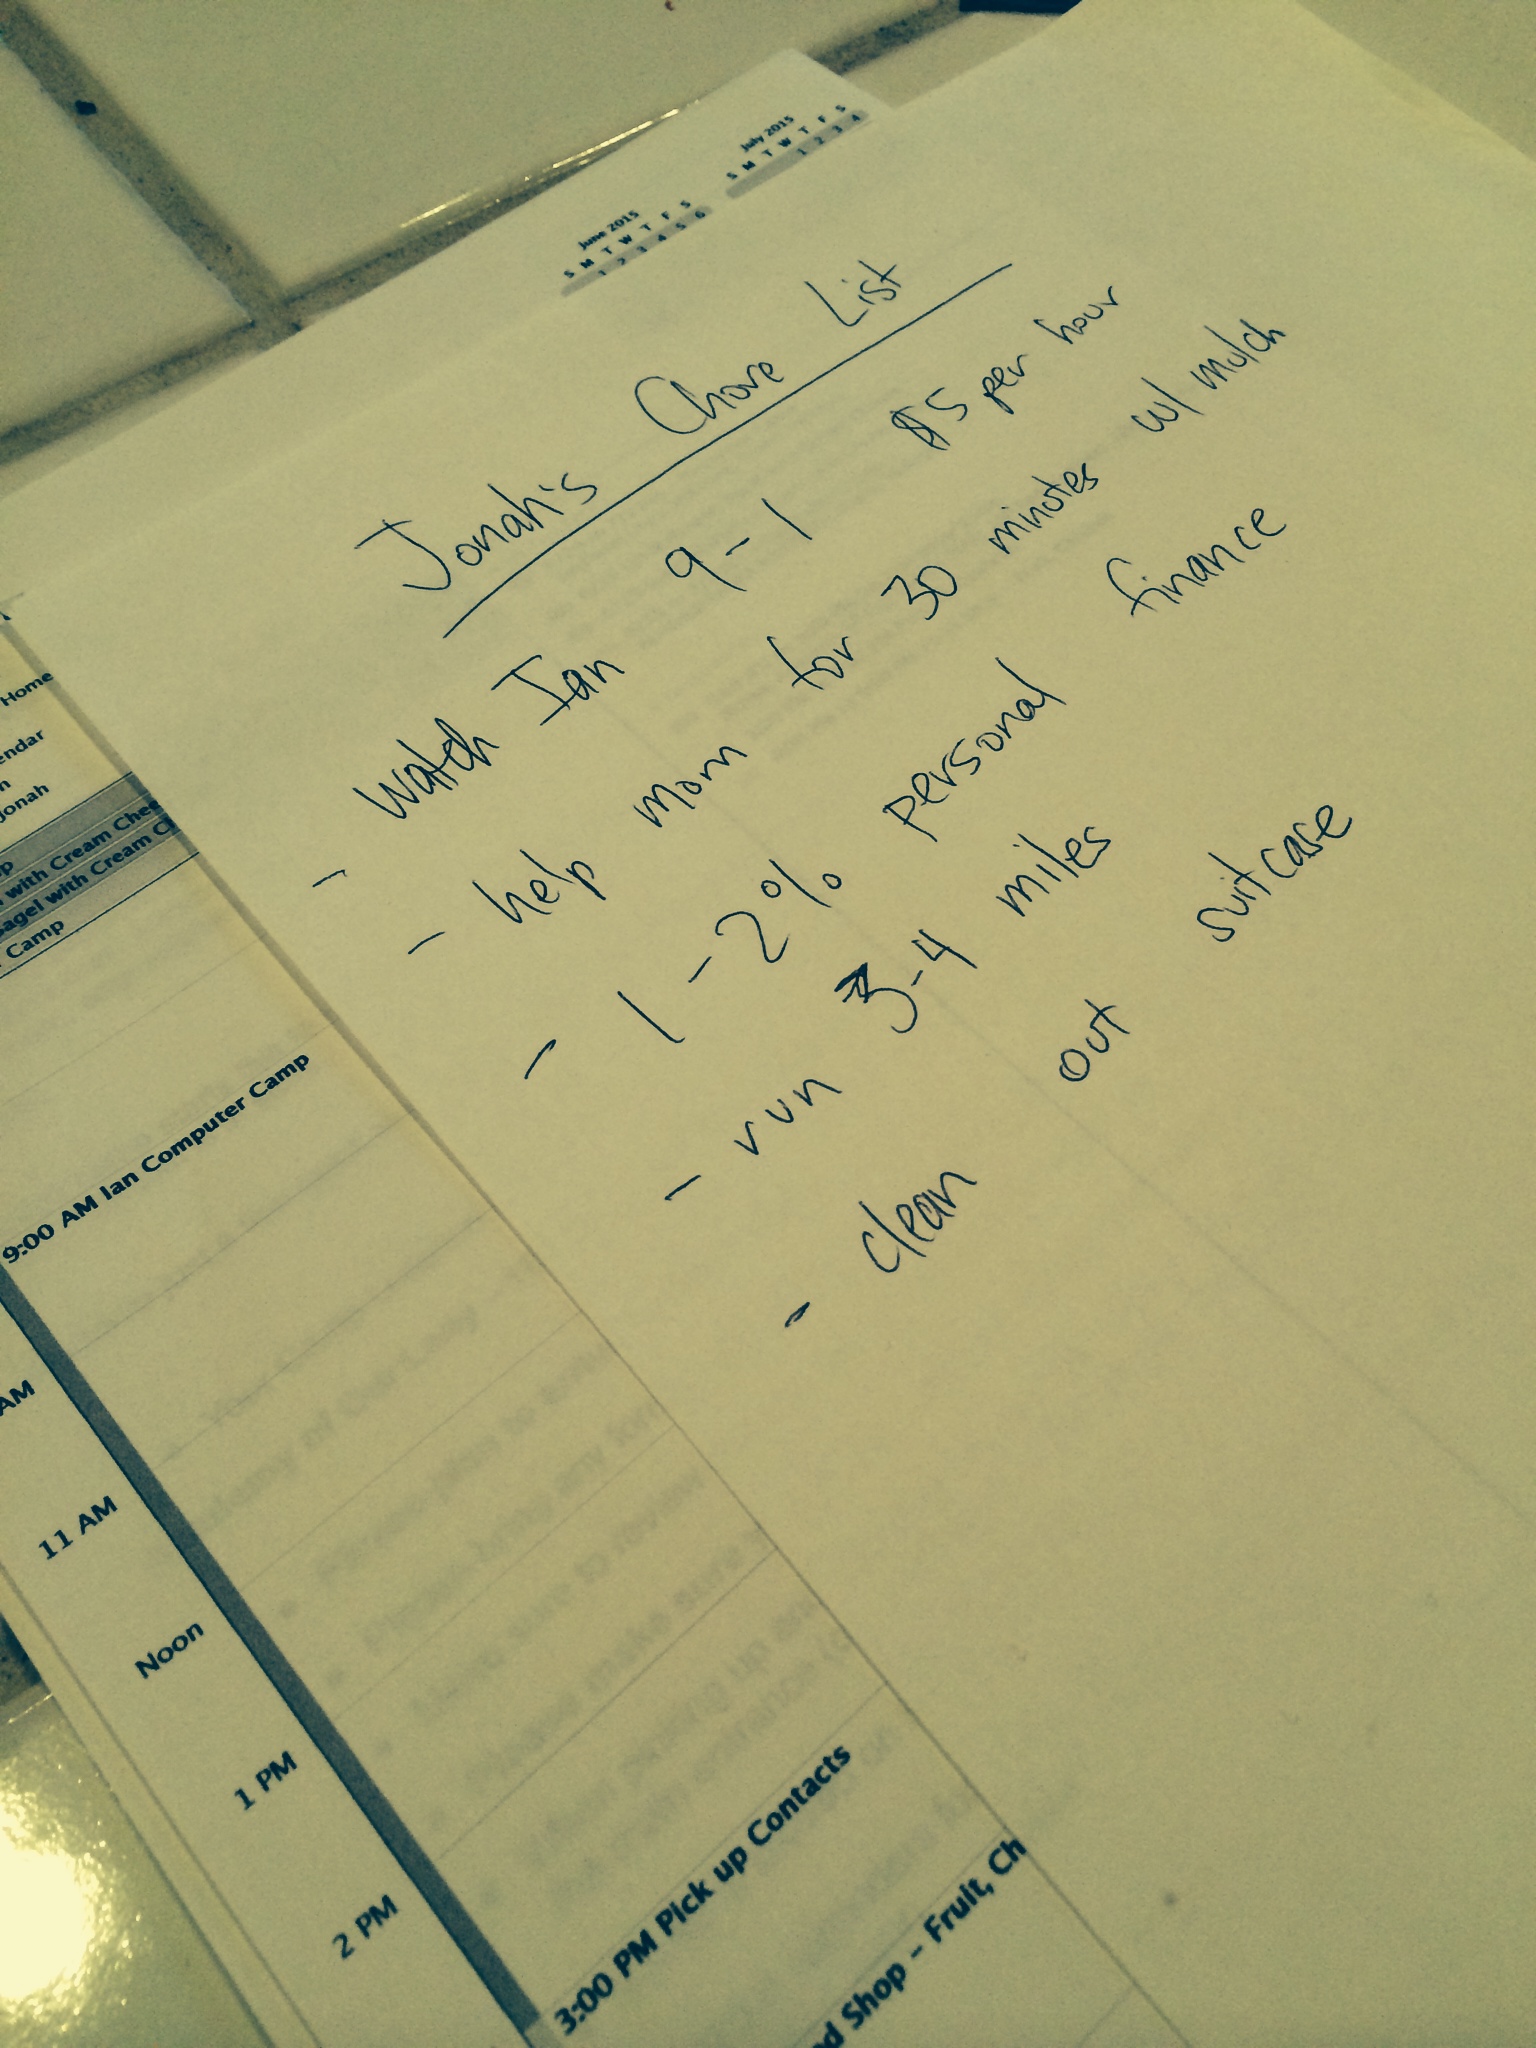 June 2015
S M T W T F S
1 2 3 4 5 6
July 2015
S M T W T F S
1 2 3 4
Jonah's Chore List
- Watch Ian 9-1 $5 per hour
- help mom for 30 minutes w/ mulch
- 1-2% personal finance
- run 3-4 miles
- clean out suitcase
Home
endar
n
Jonah
p
with Cream Chee
agel with Cream C
Camp
9:00 AM Ian Computer Camp
AM
11 AM
Noon
1 PM
2 PM
3:00 PM Pick up Contacts
d Shop - Fruit, Ch